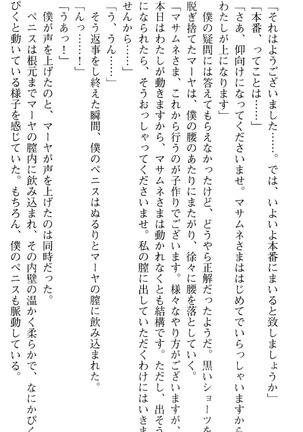 「それはようございました……。では、いよいよ本番にまいると致しましょうか」
「本番、ってことは……」
「さあ、仰向けになってくださいませ。マサムネさまははじめてでいらっしゃいますから
わたしが上になります」
　僕の疑問には答えてもらえなかったけど、どうやら正解だったようだ。黒いショーツを
脱ぎ捨てたマーヤは、僕の腰のあたりにまたがり、徐々に腰を落としていく。
「マサムネさま、これから行うのが子作りでございます。様々なやり方がございますが、
本日はわたしが動きますから、マサムネさまは動かれなくとも結構です。ただし、出そう
になられたら、そうおっしゃってくださいませ。私の膣に出していただくわけにはいきま
せんから……」
「う、うん……」
　そう返事をし終えた瞬間、僕のペニスはぬるりとマーヤの膣に飲み込まれた。
「んっ……！」
「うあっ！」
　僕が声を上げたのと、マーヤが声を上げたのは同時だった。
　ペニスは根元までマーヤの膣内に飲み込まれ、その内壁の温かく柔らかで、なにかぴく
ぴくと動いている様子を感じていた。もちろん、僕のペニスも脈動している。